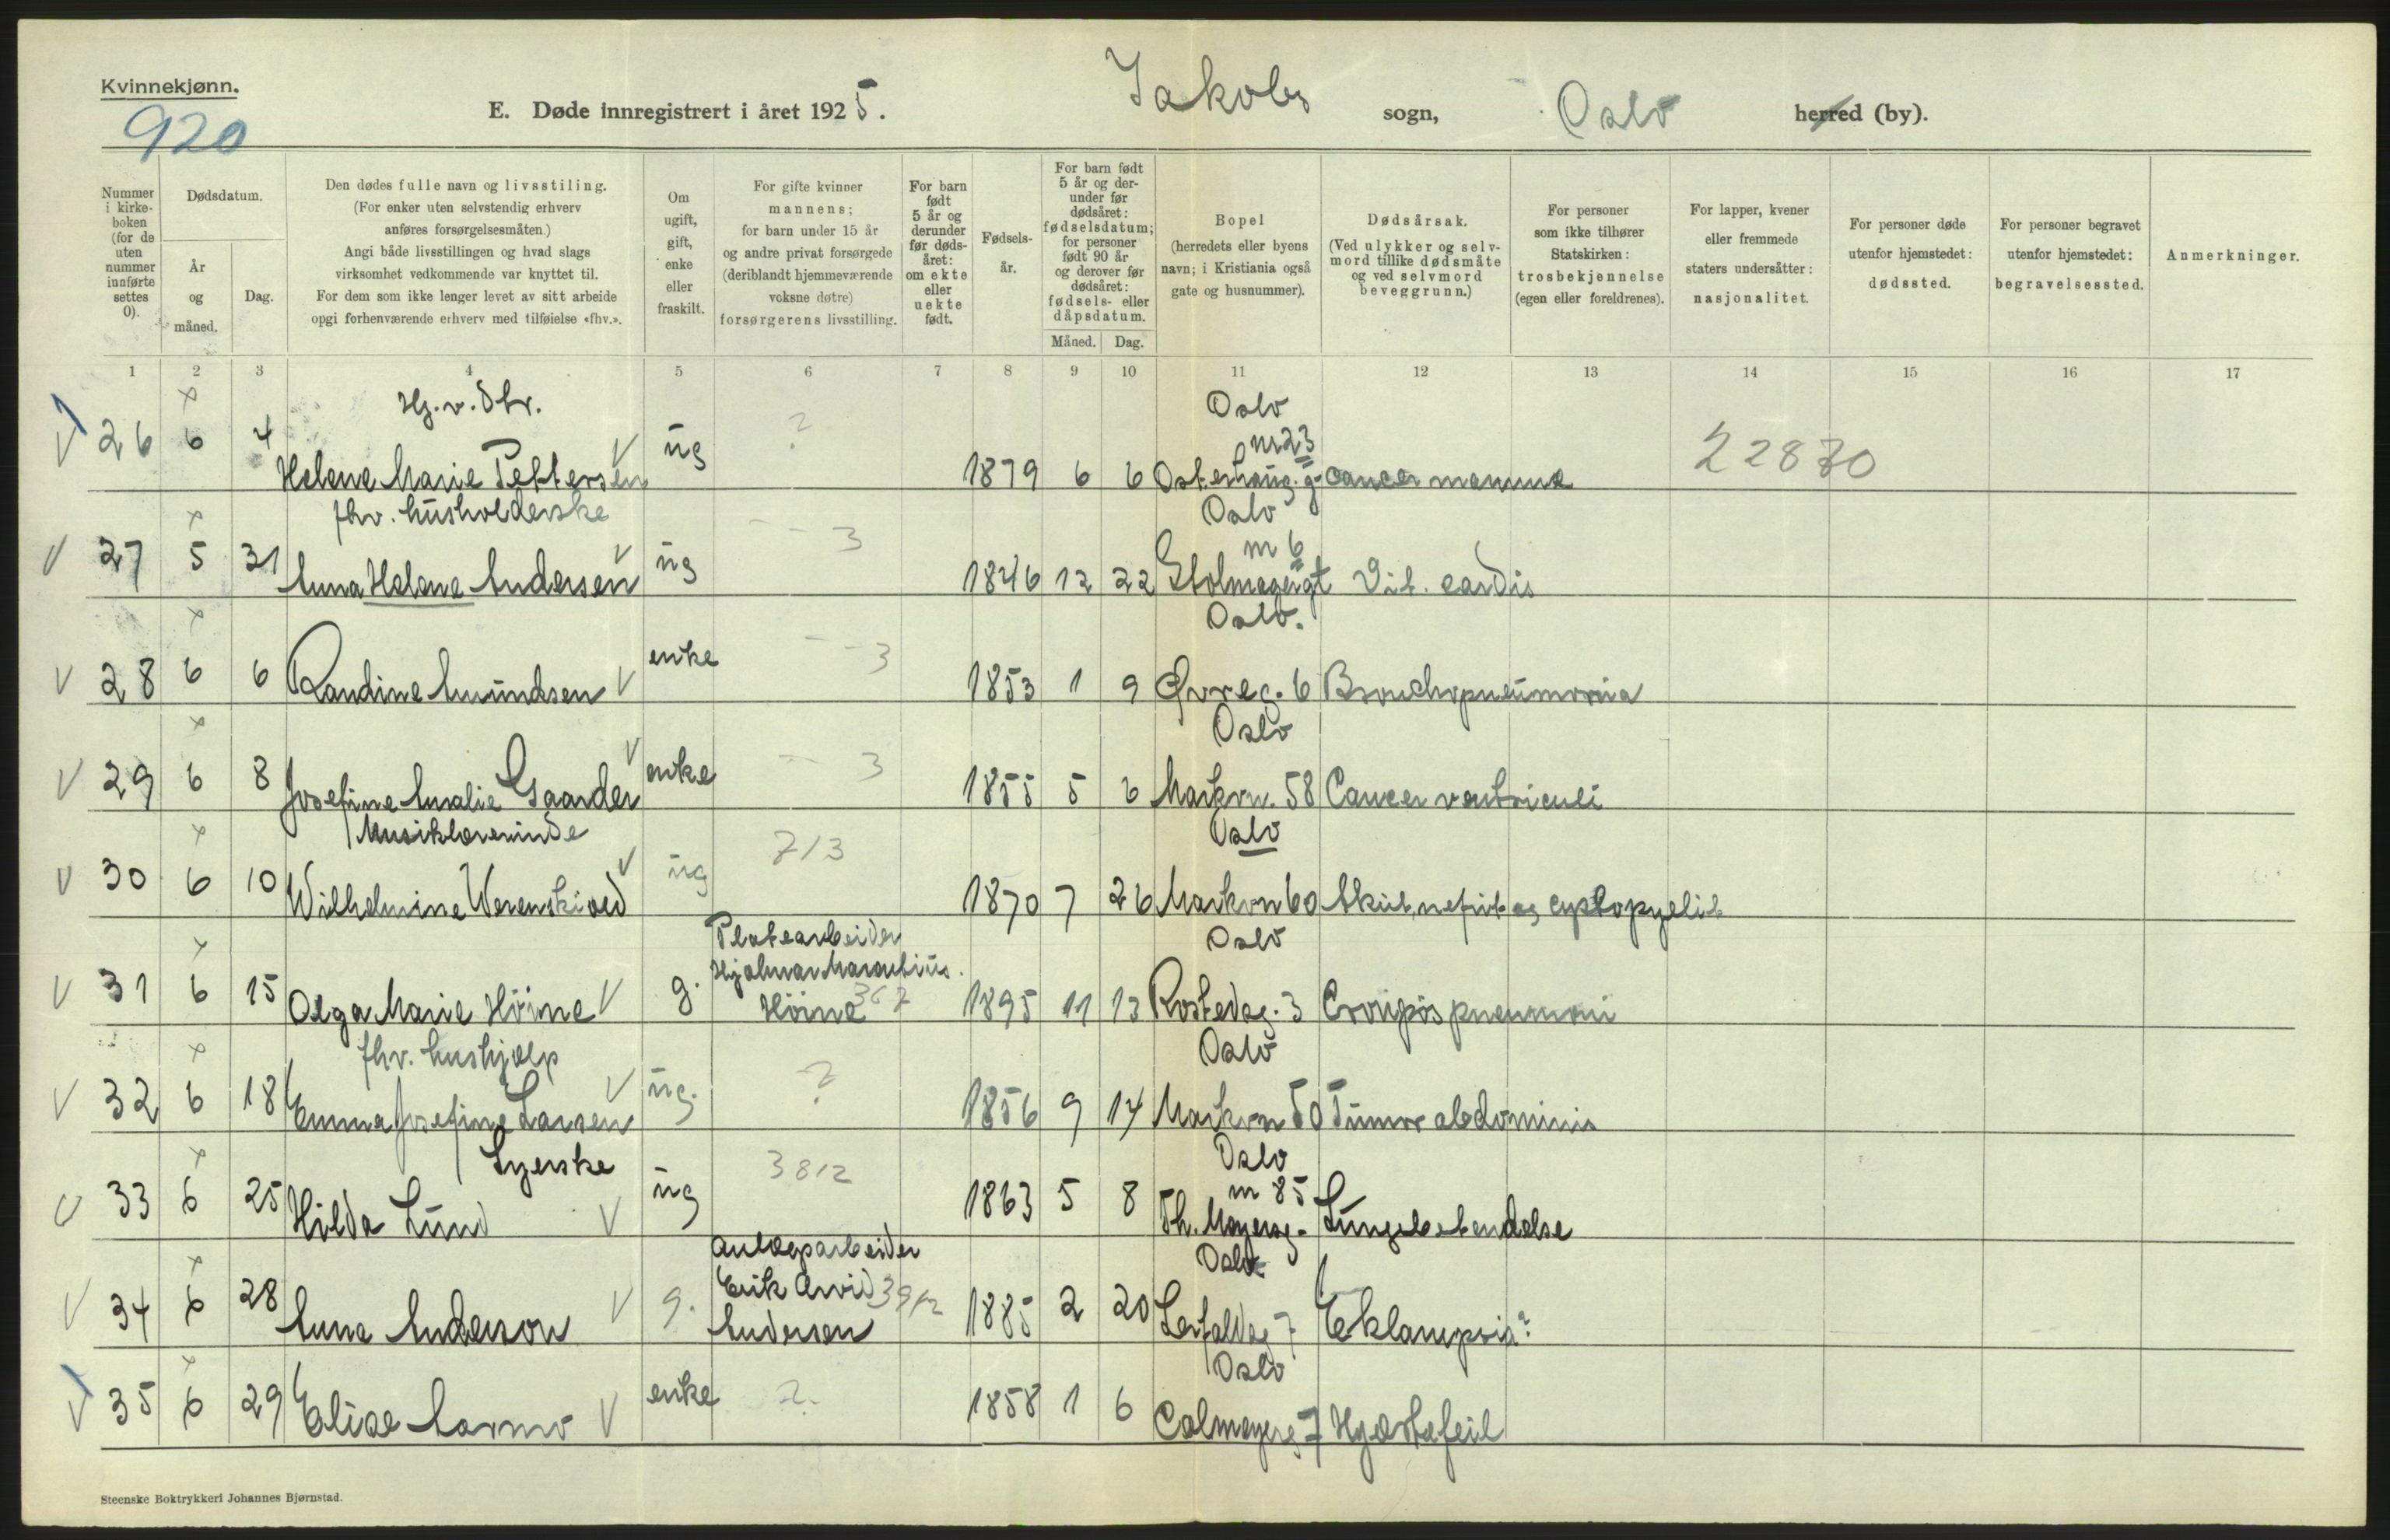 Kvinnekjønn.
920
E. Døde innregistrert i året 1925. Jakobs sogn, Oslo herred (by).
Nummer i kirkeboken (for de uten nummer innførte settes 0).
Dødsdatum.
År og måned.
Dag.
Den dødes fulle navn og livsstiling.
(For enker uten selvstendig erhverv
anføres forsørgelsesmåten.)
Angi både livsstillingen og hvad slags
virksomhet vedkommende var knyttet til.
For dem som ikke lenger levet av sitt arbeide
opgi forhenværende erhverv med tilføielse «fhv.».
Om ugift, gift, enke eller fraskilt.
For gifte kvinner
mannens;
for barn under 15 år
og andre privat forsørgede
(deriblandt hjemmeværende
voksne døtre)
forsørgerens livsstilling.
For barn født 5 år og derunder før dødsåret: om ekte eller uekte født.
Fødselsår.
For barn født 5 år og derunder før dødsåret: fødselsdatum; for personer født 90 år og derover før dødsåret: fødsels- eller dåpsdatum.
Måned. Dag.
Bopel
(herredets eller byens
navn; i Kristiania også
gate og husnummer).
Dødsårsak.
(Ved ulykker og selvmord tillike dødsmåte og ved selvmord beveggrunn.)
For personer
som ikke tilhører
Statskirken:
trosbekjennelse
(egen eller foreldrenes).
For lapper, kvener
eller fremmede
staters undersåtter:
nasjonalitet.
For personer døde
utenfor hjemstedet:
dødssted.
For personer begravet
utenfor hjemstedet:
begravelsessted.
Anmerkninger.
1 2 3 4 5 6 7 8 9 10 11 12 13 14 15 16 17
Hj. v. dtr. Oslo
nr 23
26 6 4 Helene Marie Pettersen ug ? 1879 6 6 Osterhaug.g. cancer mamma 22870
fhv. husholderske Oslo
nr 6
27 5 31 Anna Helene Andersen ug - 3 1846 12 22 Stolmagergt Vit. cardis
Oslo.
28 6 6 Randine Amundsen enke - 3 1853 1 9 Øvreg. 6 Bronchopneumonia
Oslo
29 6 8 Josefine Amalie Gaarder enke - 3 1855 5 6 Markvn. 58 Cancer ventriculi
Musiklærerinde Oslo
30 6 10 Wilhelmine Werenskiold ug 713 1870 7 26 Markvn 60 Akut nefrit og cystopyelit
Platearbeider Oslo
Hjalmar Marentius
31 6 15 Olga Marie Höine g. Höine 367 1895 11 13 Rostedsg. 3 Croupøs pneumoni
fhv. hushjælp Oslo
32 6 18 Emma Josefine Larsen ug. ? 1856 9 14 Markvn 50 Tumor abdominis
Syerske Oslo
nr 85
33 6 25 Hilda Lund ug 3812 1863 5 8 Th. Meyersg. Lungebetendelse
Anlægsarbeider Oslo
Erik Arvid 3912
34 6 28 Anna Anderson g. Andersen 1885 2 20 Lerfaldsg 7 Eklampsia?
Oslo
35 6 29 Elise Aarmo enke ? 1858 1 6 Calmeyersg 7 Hjertefeil
Steenske Boktrykkeri Johannes Bjørnstad.